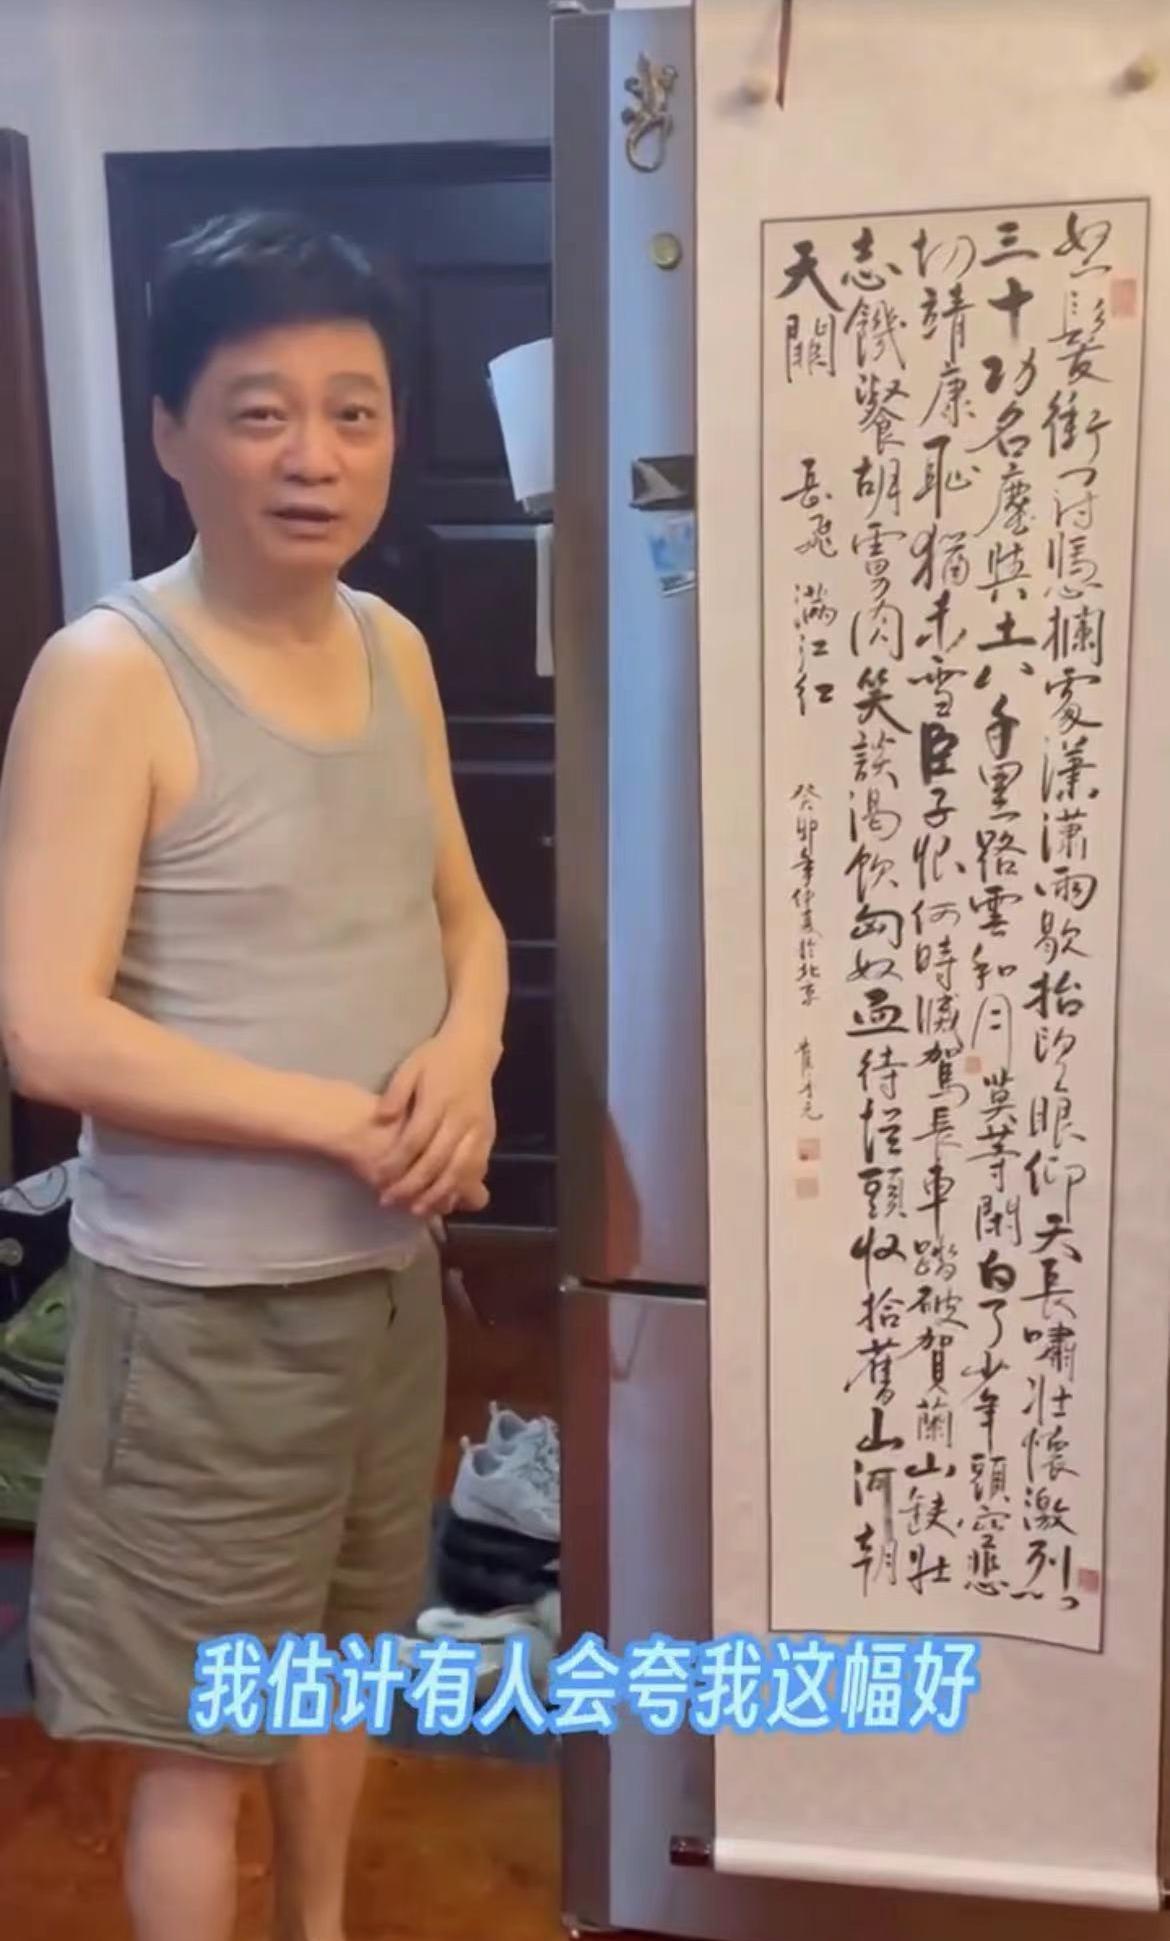 怒髮衝冠憑攔處瀟瀟雨歇抬望眼仰天長嘯壯懷激烈
三十功名塵與土八千里路雲和月莫等閑白了少年頭空悲
切靖康恥猶未雪臣子恨何時滅駕長車踏破賀蘭山缺壯
志饑餐胡虜肉笑談渴飲匈奴血待從頭收拾舊山河朝
天闕 岳飛 滿江红 癸卯年仲夏於北京 崔永元
我估计有人会夸我这幅好